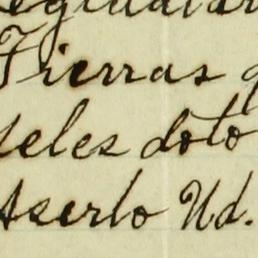 Tierras
seles doto
Aserlo Ud.